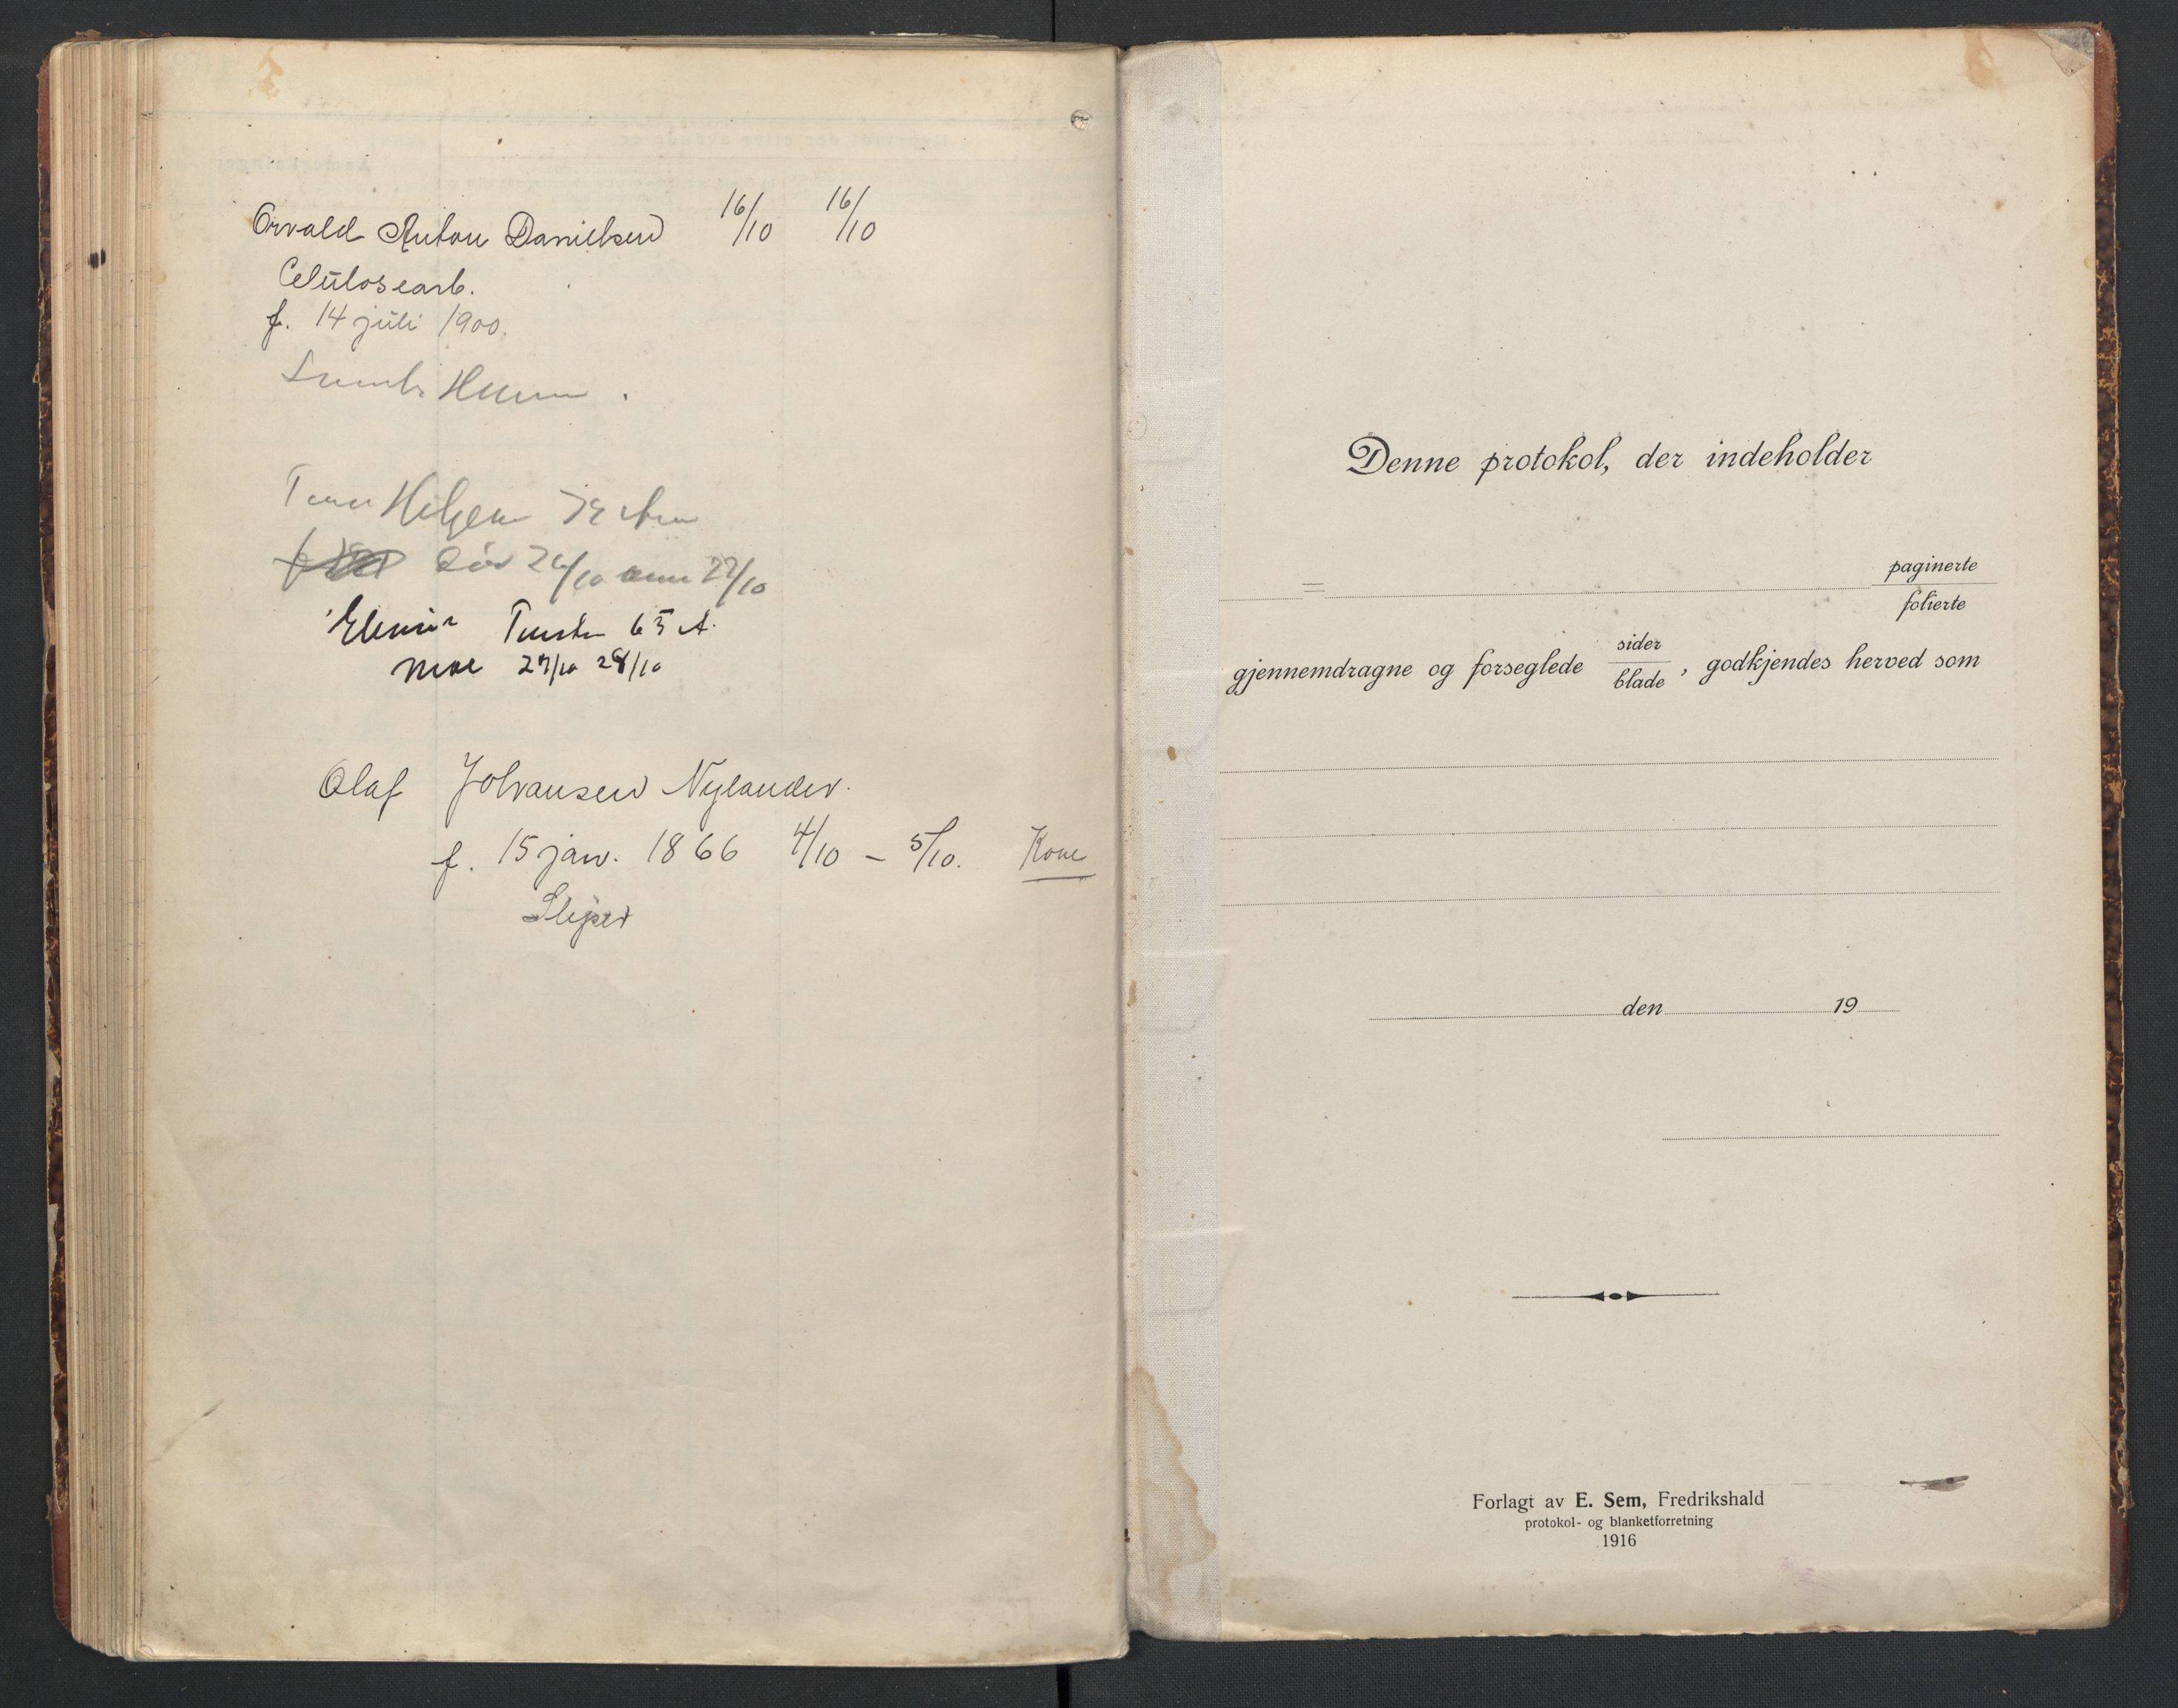 Orvald Anton Danielsen 16/10 16/10
Celulosearb.
f. 14 juli 1900.
Helgesen
26/10 27/10
65 A.
27/10 28/10
Olaf Johansen Nylander.
f. 15 jan. 1866 4/10 – 5/10. Kone
Sliper
Denne protokol, der indeholder
paginerte
folierte
gjennemdragne og forseglede sider
blade , godkjendes herved som
den 19
Forlagt av E. Sem, Fredrikshald
protokol- og blanketforretning
1916